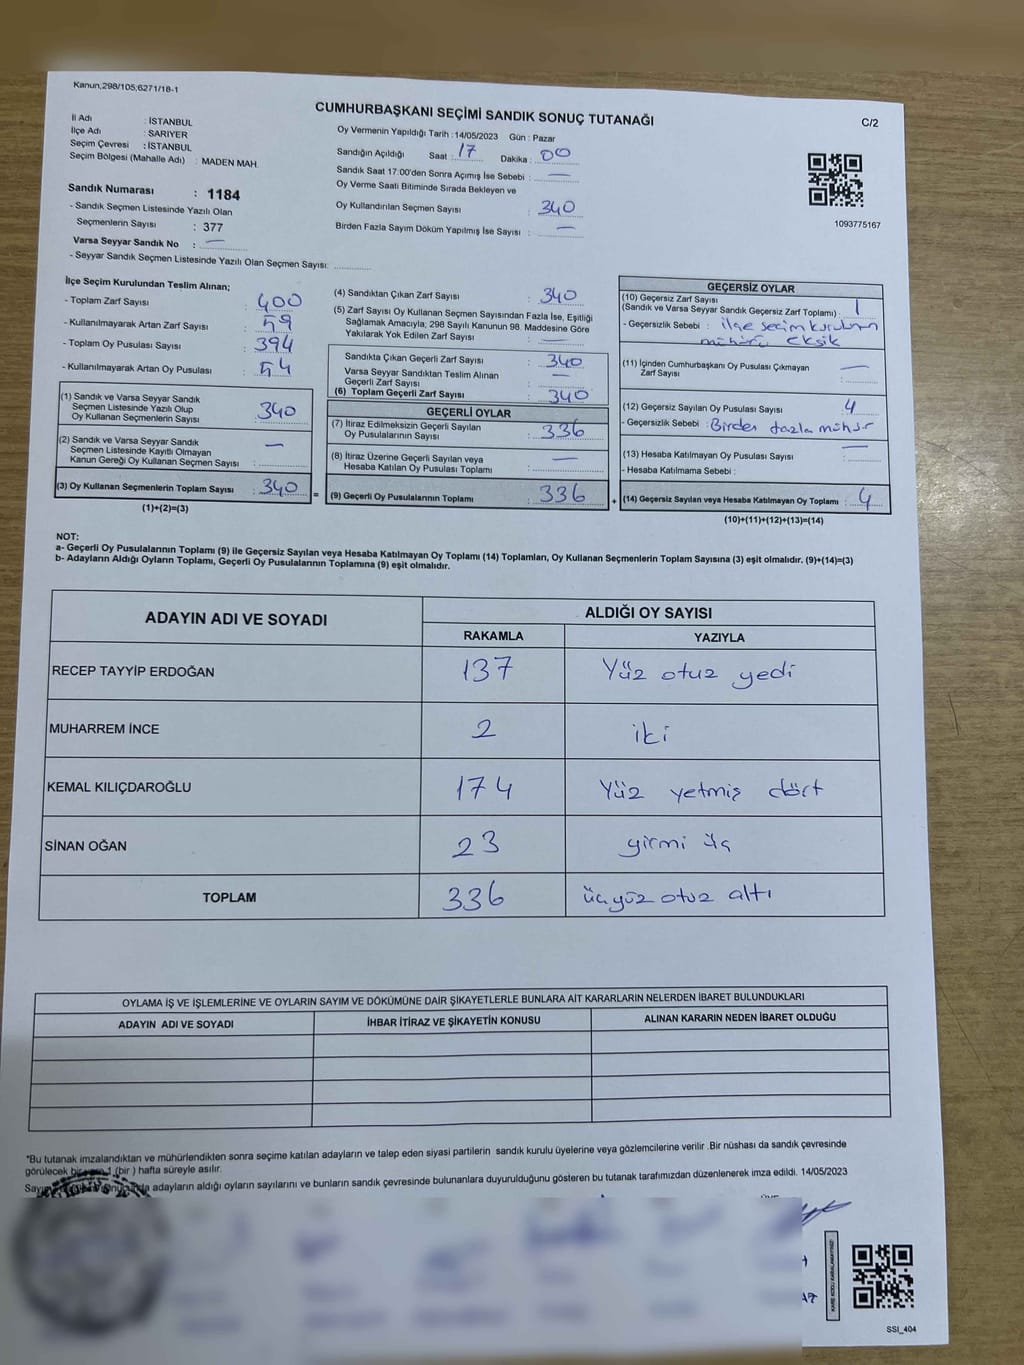 Kanun,298/105;6271/18-1
CUMHURBAŞKANI SEÇİMİ SANDIK SONUÇ TUTANAĞI
C/2
İl Adı : İSTANBUL
İlçe Adı : SARIYER
Seçim Çevresi : İSTANBUL
Seçim Bölgesi (Mahalle Adı) : MADEN MAH.
Sandık Numarası : 1184
- Sandık Seçmen Listesinde Yazılı Olan
Seçmenlerin Sayısı : 377
Varsa Seyyar Sandık No : —
- Seyyar Sandık Seçmen Listesinde Yazılı Olan Seçmen Sayısı:
Oy Vermenin Yapıldığı Tarih :14/05/2023 Gün : Pazar
Sandığın Açıldığı Saat : 17 Dakika : 00
Sandık Saat 17:00'den Sonra Açmış İse Sebebi : —
Oy Verme Saati Bitiminde Sırada Bekleyen ve
Oy Kullandırılan Seçmen Sayısı : 340
Birden Fazla Sayım Döküm Yapılmış İse Sayısı : —
1093775167
İlçe Seçim Kurulundan Teslim Alınan;
- Toplam Zarf Sayısı : 400
- Kullanılmayarak Artan Zarf Sayısı : 59
- Toplam Oy Pusulası Sayısı : 394
- Kullanılmayarak Artan Oy Pusulası : 54
(1) Sandık ve Varsa Seyyar Sandık
Seçmen Listesinde Yazılı Olup
Oy Kullanan Seçmenlerin Sayısı : 340
(2) Sandık ve Varsa Seyyar Sandık
Seçmen Listesinde Kayıtlı Olmayan
Kanun Gereği Oy Kullanan Seçmen Sayısı : —
(3) Oy Kullanan Seçmenlerin Toplam Sayısı : 340
(1)+(2)=(3)
(4) Sandıktan Çıkan Zarf Sayısı : 340
(5) Zarf Sayısı Oy Kullanan Seçmen Sayısından Fazla İse, Eşitliği
Sağlamak Amacıyla, 298 Sayılı Kanunun 98. Maddesine Göre
Yakılarak Yok Edilen Zarf Sayısı : —
Sandıkta Çıkan Geçerli Zarf Sayısı : 340
Varsa Seyyar Sandıktan Teslim Alınan
Geçerli Zarf Sayısı : —
(6) Toplam Geçerli Zarf Sayısı : 340
GEÇERLİ OYLAR
(7) İtiraz Edilmeksizin Geçerli Sayılan
Oy Pusulalarının Sayısı : 336
(8) İtiraz Üzerine Geçerli Sayılan veya
Hesaba Katılan Oy Pusulası Toplamı : —
= (9) Geçerli Oy Pusulalarının Toplamı : 336
GEÇERSİZ OYLAR
(10) Geçersiz Zarf Sayısı
(Sandık ve Varsa Seyyar Sandık Geçersiz Zarf Toplamı) : 1
- Geçersizlik Sebebi : ilçe seçim kurulunun
mühürü eksik
(11) İçinden Cumhurbaşkanı Oy Pusulası Çıkmayan
Zarf Sayısı : —
(12) Geçersiz Sayılan Oy Pusulası Sayısı : 4
- Geçersizlik Sebebi : Birden fazla mühür
(13) Hesaba Katılmayan Oy Pusulası Sayısı : —
- Hesaba Katılmama Sebebi :
+ (14) Geçersiz Sayılan veya Hesaba Katılmayan Oy Toplamı : 4
(10)+(11)+(12)+(13)=(14)
NOT:
a- Geçerli Oy Pusulalarının Toplamı (9) ile Geçersiz Sayılan veya Hesaba Katılmayan Oy Toplamı (14) Toplamları, Oy Kullanan Seçmenlerin Toplam Sayısına (3) eşit olmalıdır. (9)+(14)=(3)
b- Adayların Aldığı Oyların Toplamı, Geçerli Oy Pusulalarının Toplamına (9) eşit olmalıdır.
ADAYIN ADI VE SOYADI ALDIĞI OY SAYISI
RAKAMLA YAZIYLA
RECEP TAYYİP ERDOĞAN 137 Yüz otuz yedi
MUHARREM İNCE 2 iki
KEMAL KILIÇDAROĞLU 174 Yüz yetmiş dört
SİNAN OĞAN 23 yirmi üç
TOPLAM 336 üçyüz otuz altı
OYLAMA İŞ VE İŞLEMLERİNE VE OYLARIN SAYIM VE DÖKÜMÜNE DAİR ŞİKAYETLERLE BUNLARA AİT KARARLARIN NELERDEN İBARET BULUNDUKLARI
ADAYIN ADI VE SOYADI İHBAR İTİRAZ VE ŞİKAYETİN KONUSU ALINAN KARARIN NEDEN İBARET OLDUĞU
*Bu tutanak imzalandıktan ve mühürlendikten sonra seçime katılan adayların ve talep eden siyasi partilerin sandık kurulu üyelerine veya gözlemcilerine verilir .Bir nüshası da sandık çevresinde
görülecek bir yere 1 (bir ) hafta süreyle asılır.
adayların aldığı oyların sayılarını ve bunların sandık çevresinde bulunanlara duyurulduğunu gösteren bu tutanak tarafımızdan düzenlenerek imza edildi. 14/05/2023
SSI_404